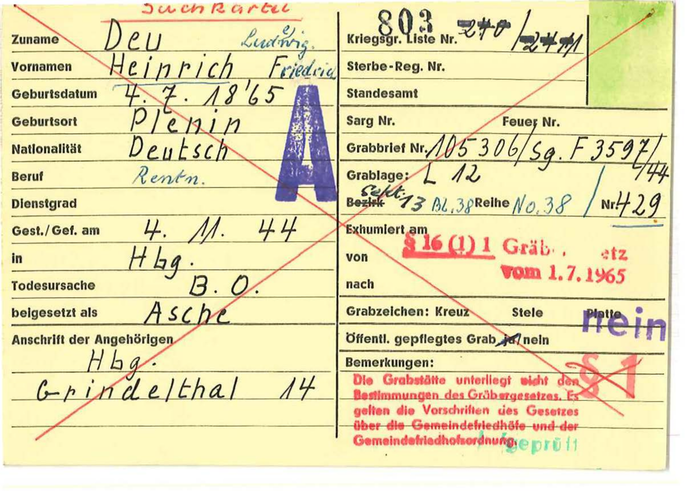 Suchkartei
Zuname Deu Ludwig.
Vornamen Heinrich Friedrich
Geburtsdatum 4. 7. 18'65
Geburtsort Plenin
Nationalität Deutsch
Beruf Rentn.
Dienstgrad
Gest./Gef. am 4. 11. 44
in Hbg.
Todesursache B. O.
beigesetzt als Asche
Anschrift der Angehörigen
Hbg.
Grindelthal 14
A
803
Kriegsgr. Liste Nr.
Sterbe-Reg. Nr.
Standesamt
Sarg Nr. Feuer Nr.
Grabbrief Nr. 105306/Sg. F 3597/44
Grablage: L 12
Sept. 13
Bezirk Bl. 38 Reihe No. 38 / Nr 429
Exhumiert am
§ 16 (1) 1 Gräb etz
vom 1.7.1965
von
nach
Grabzeichen: Kreuz Stele Platte
nein
Öffentl. gepflegtes Grab ja/nein
Bemerkungen:
§ 1
Die Grabstätte unterliegt nicht den
Bestimmungen des Gräbergesetzes. Es
gelten die Vorschriften des Gesetzes
über die Gemeindefriedhöfe und der
Gemeindefriedhofsordnung.
geprüft